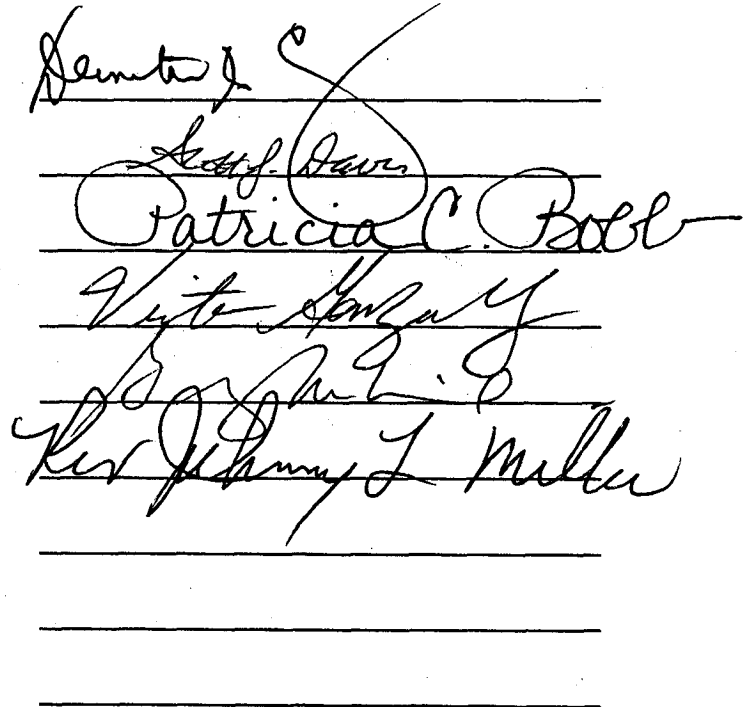 J.
Scott J. Davis
Patricia C. Bobb
Victor Gonzalez
Rev Johnny L Miller